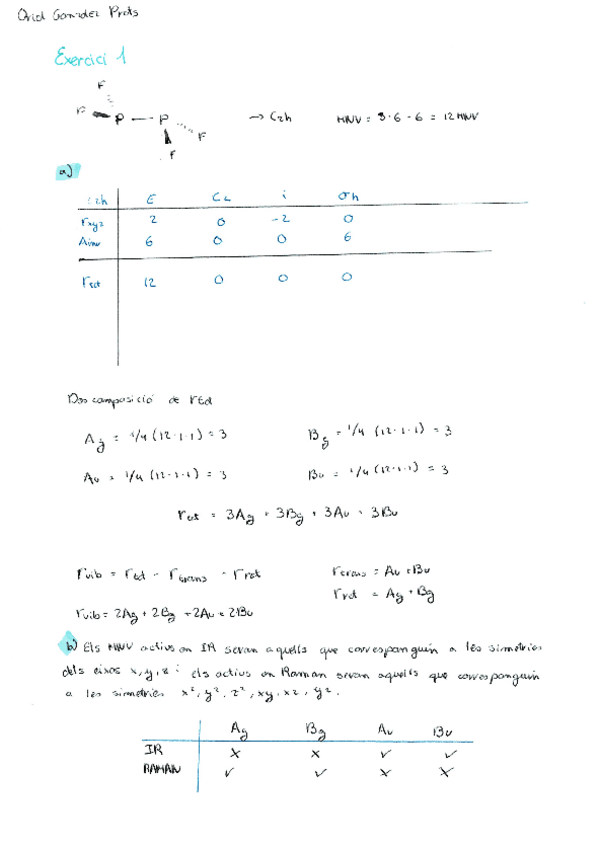 Oriol González Prats
Exercici 1
F
F P — P F
F
→ C2h
MNV = 3·6 - 6 = 12 MNV
a)
C2h E C2 i σh
Γxyz 2 0 -2 0
Ainv 6 0 0 6
Γtot 12 0 0 0
Descomposició de Γtot
Ag = 1/4 (12·1·1) = 3
Bg = 1/4 (12·1·1) = 3
Au = 1/4 (12·1·1) = 3
Bu = 1/4 (12·1·1) = 3
Γtot = 3Ag + 3Bg + 3Au + 3Bu
Γvib = Γtot - Γtrans - Γrot
Γtrans = Au + Bu
Γrot = Ag + Bg
Γvib = 2Ag + 2Bg + 2Au + 2Bu
b) Els MNV actius en IR seran aquells que corresponguin a les simetries
dels eixos x, y, z i els actius en Raman seran aquells que corresponguin
a les simetries x², y², z², xy, xz, yz.
Ag Bg Au Bu
IR ✗ ✗ ✓ ✓
RAMAN ✓ ✓ ✗ ✗